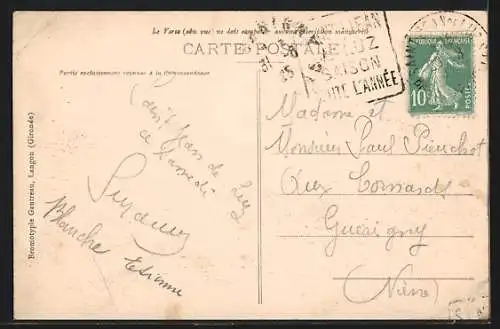 Le Verso (côté vue) ne doit comporter aucune annotation manuscrite
CARTE POSTALE
Partie exclusivement réservée à la Correspondance
Bromotypie Gautreau, Langon (Gironde)
ST JEAN
DE LUZ
SAISON
TOUTE L'ANNÉE
RÉPUBLIQUE FRANÇAISE
10
POSTES
Saint Jean de Luz
ce Samedi
Suzanne
Blanche Etienne
Madame et
Monsieur Paul
Aux
Guérigny
(Nièvre)